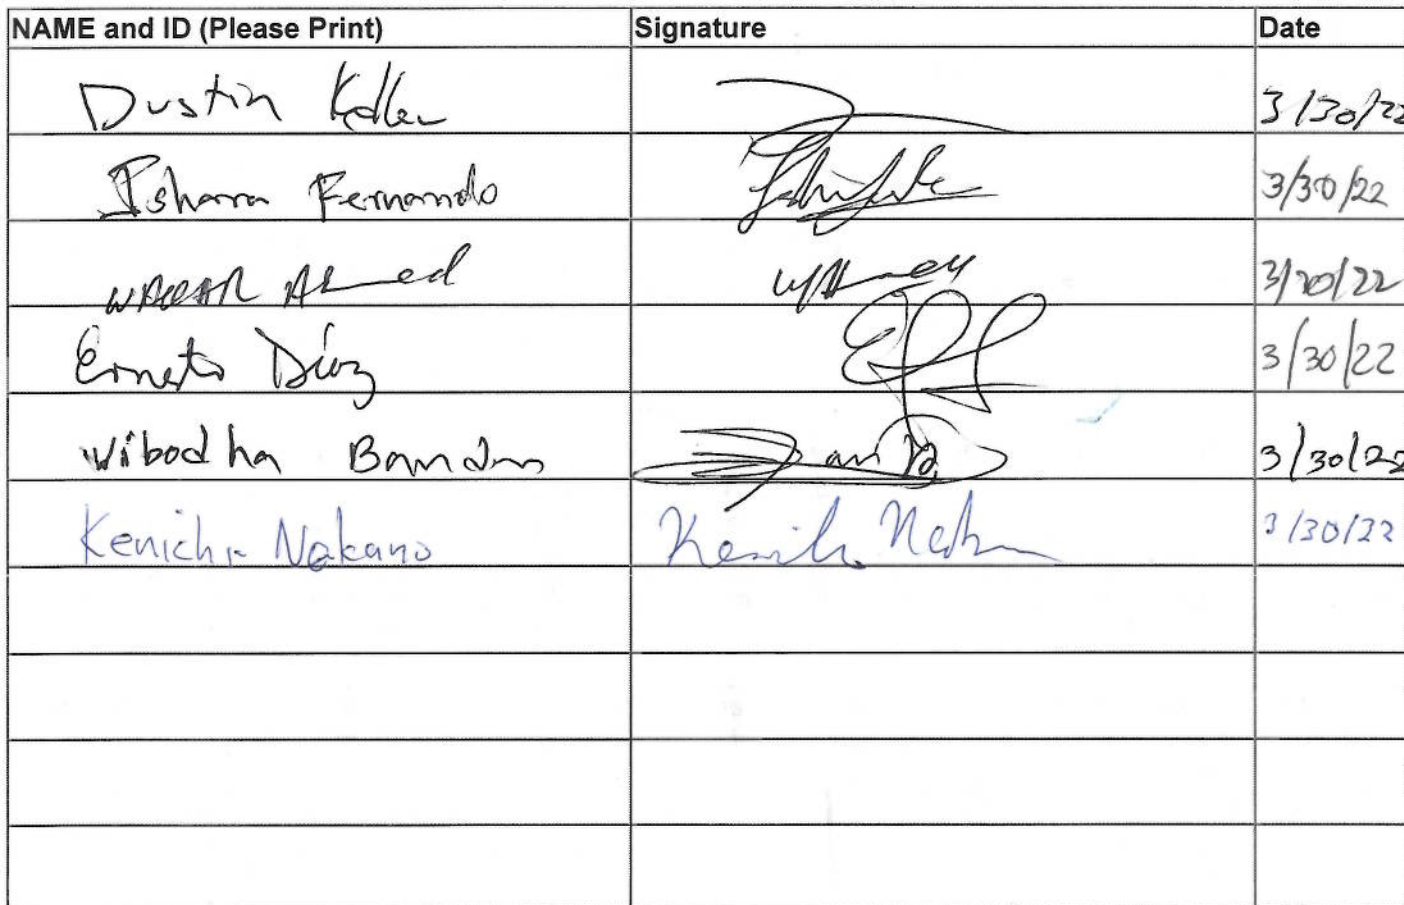 NAME and ID (Please Print) Signature Date
Dustin Keller 3/30/22
Ishara Fernando 3/30/22
WAQAR Ahmed W Ahmed 3/30/22
Ernesto Díaz 3/30/22
Wibodha 3/30/22
Kenichi Nakano Kenichi Nakano 3/30/22